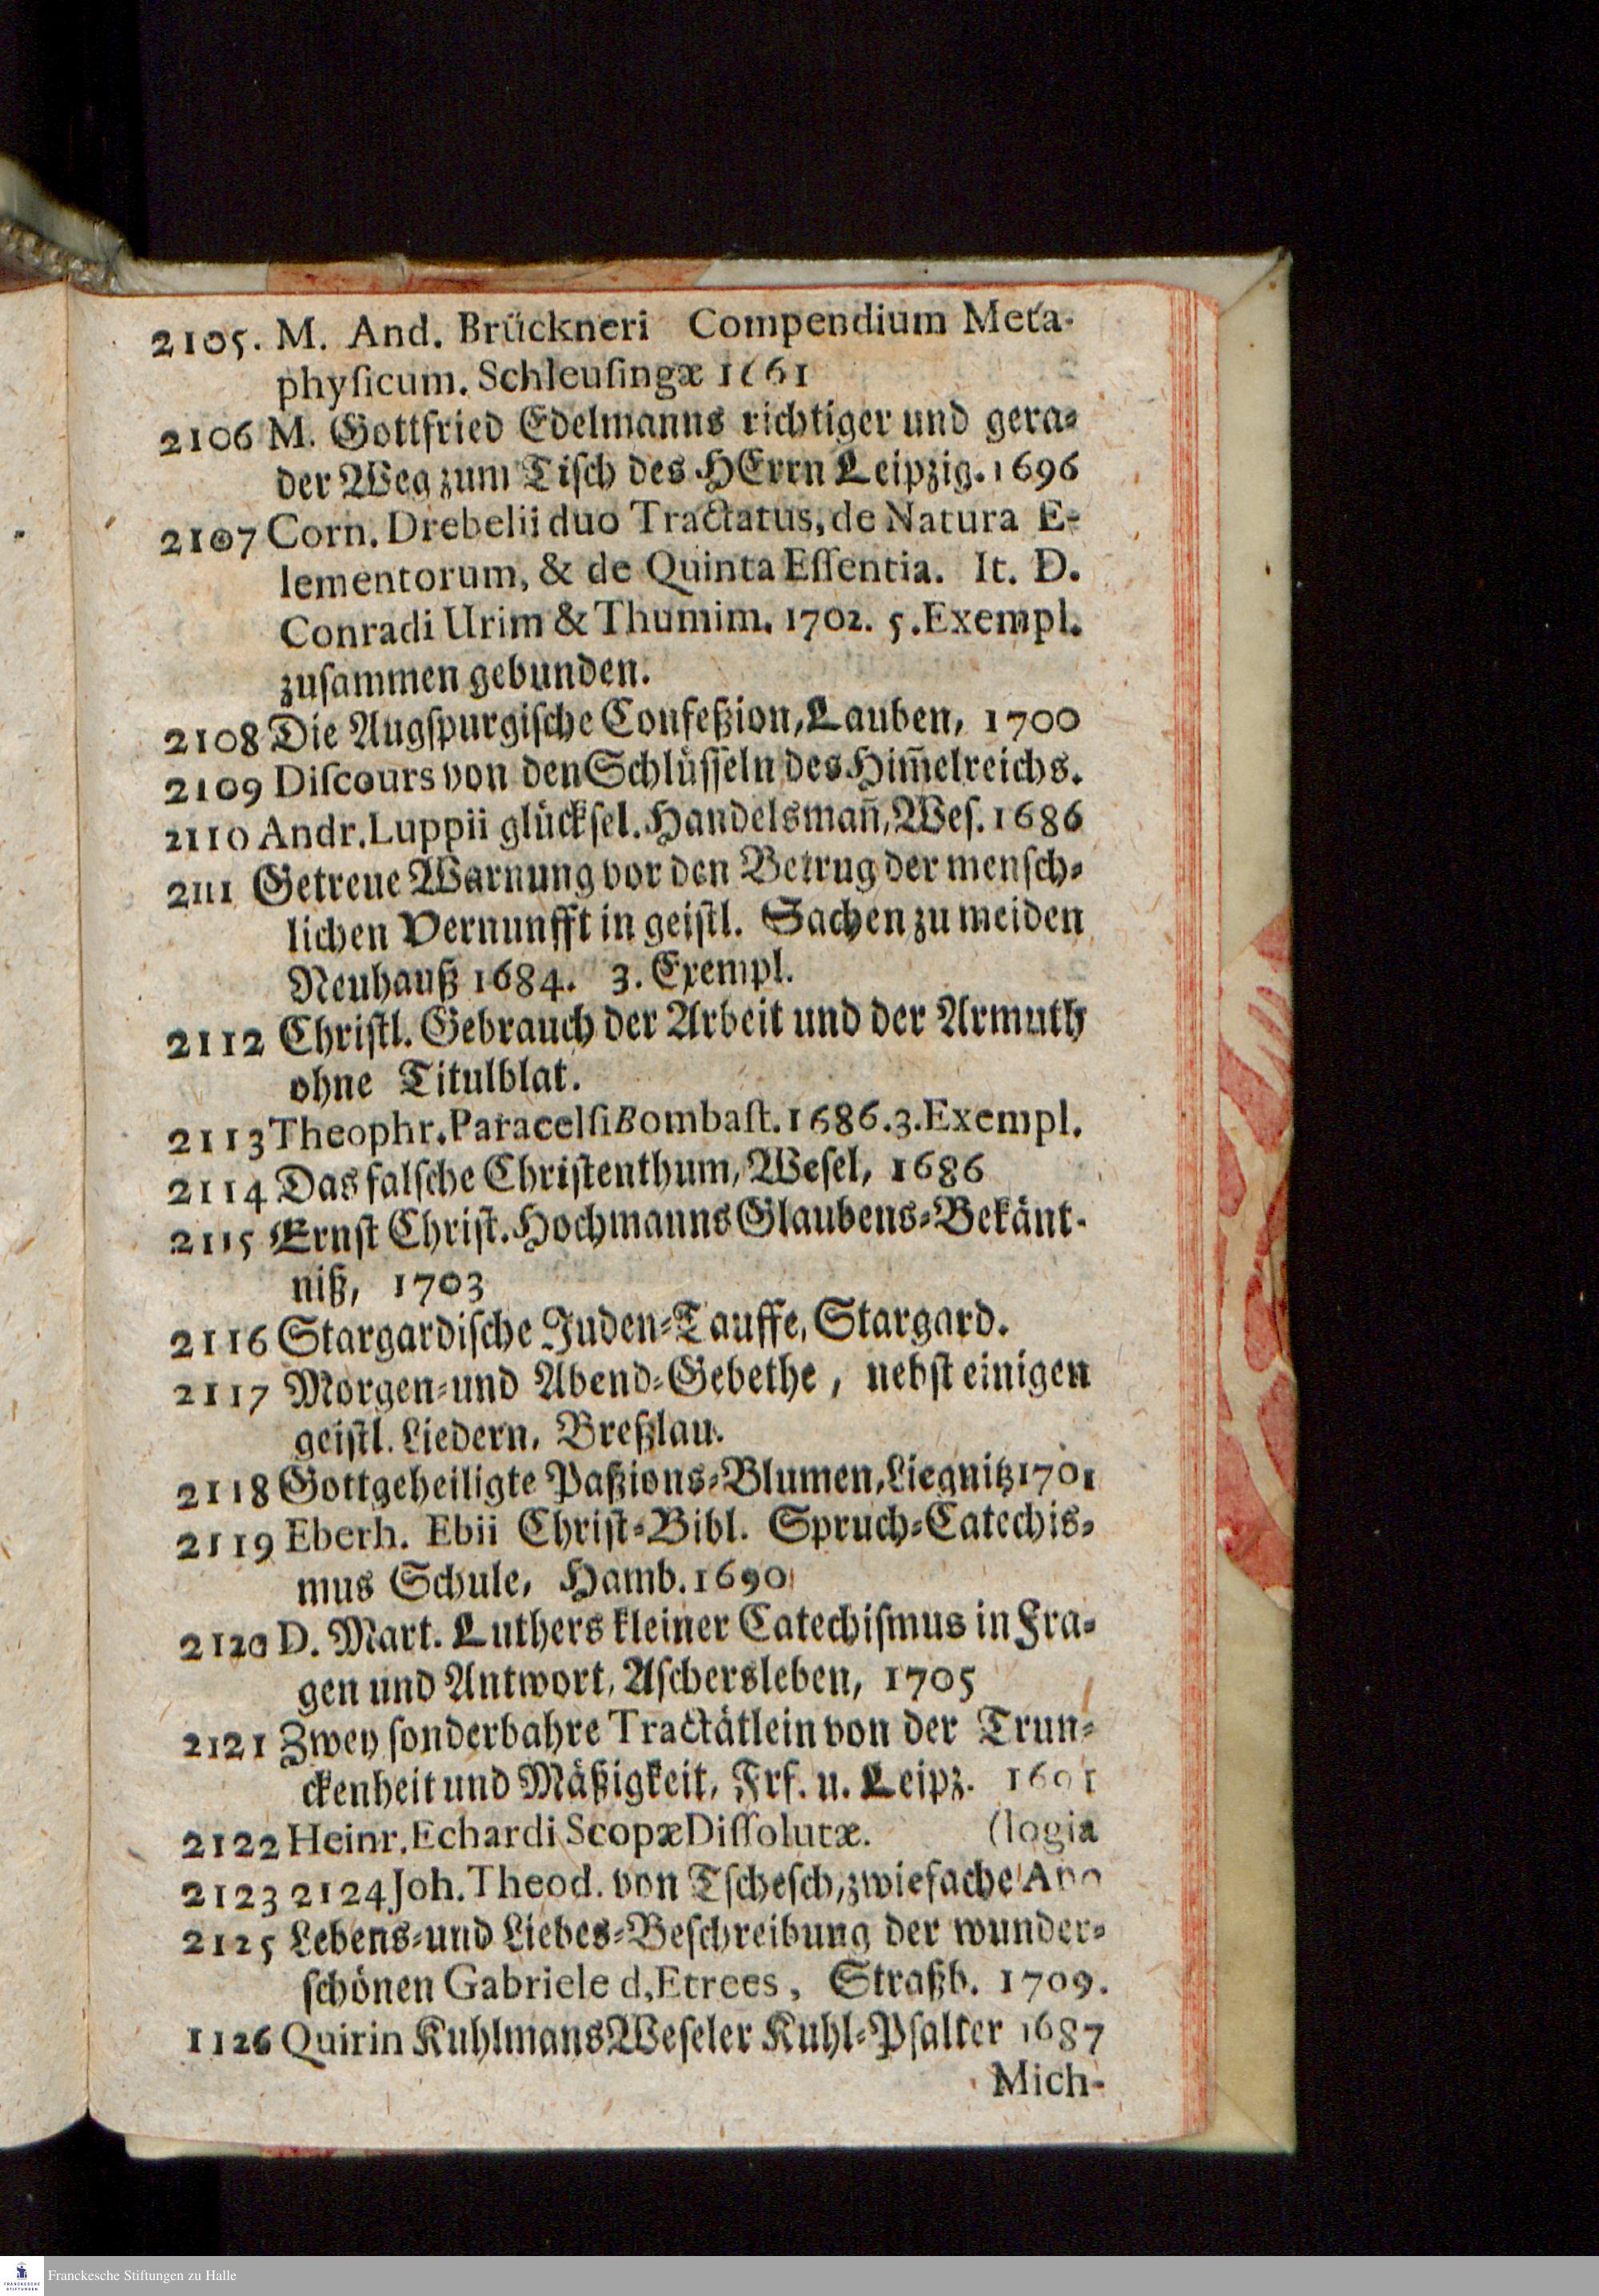 2105. M. And. Brückneri Compendium Meta-
phyſicum. Schleuſingæ 1661
2106 M. Gottfried Edelmanns richtiger und gera⸗
der Weg zum Tiſch des HErrn Leipzig. 1696
2107 Corn. Drebelii duo Tractatus, de Natura E-
lementorum, & de Quinta Eſſentia. It. D.
Conradi Urim & Thumim. 1702. 5. Exempl.
zuſammen gebunden.
2108 Die Augſpurgiſche Confeßion, Lauben, 1700
2109 Diſcours von den Schlüſſeln des Him̄elreichs.
2110 Andr. Luppii glückſel. Handelsman̄, Weſ. 1686
2111 Getreue Warnung vor den Betrug der menſch⸗
lichen Vernunfft in geiſtl. Sachen zu meiden
Neuhauß 1684. 3. Exempl.
2112 Chriſtl. Gebrauch der Arbeit und der Armuth
ohne Titulblat.
2113 Theophr. Paracelſi Bombaſt. 1686. 3. Exempl.
2114 Das falſche Chriſtenthum, Weſel, 1686
2115 Ernſt Chriſt. Hochmanns Glaubens⸗Bekänt-
niß, 1703
2116 Stargardiſche Juden⸗Tauffe, Stargard.
2117 Morgen⸗und Abend⸗Gebethe, nebſt einigen
geiſtl. Liedern, Breßlau.
2118 Gottgeheiligte Paßions⸗Blumen, Liegnitz 1701
2119 Eberh. Ebii Chriſt⸗Bibl. Spruch⸗Catechis⸗
mus Schule, Hamb. 1690
2120 D. Mart. Luthers kleiner Catechiſmus in Fra⸗
gen und Antwort, Aſchersleben, 1705
2121 Zwey ſonderbahre Tractätlein von der Trun⸗
ckenheit und Mäßigkeit, Frf. u. Leipz. 1691
2122 Heinr. Echardi Scopæ Diſſolutæ. (logia
2123 2124 Joh. Theod. von Tſcheſch, zwiefache Apo
2125 Lebens⸗und Liebes⸗Beſchreibung der wunder⸗
ſchönen Gabriele d,Etrees, Straßb. 1709.
1126 Quirin Kuhlmans Weſeler Kuhl⸗Pſalter 1687
Mich-
FRANCKESCHE
STIFTUNGEN
Franckesche Stiftungen zu Halle